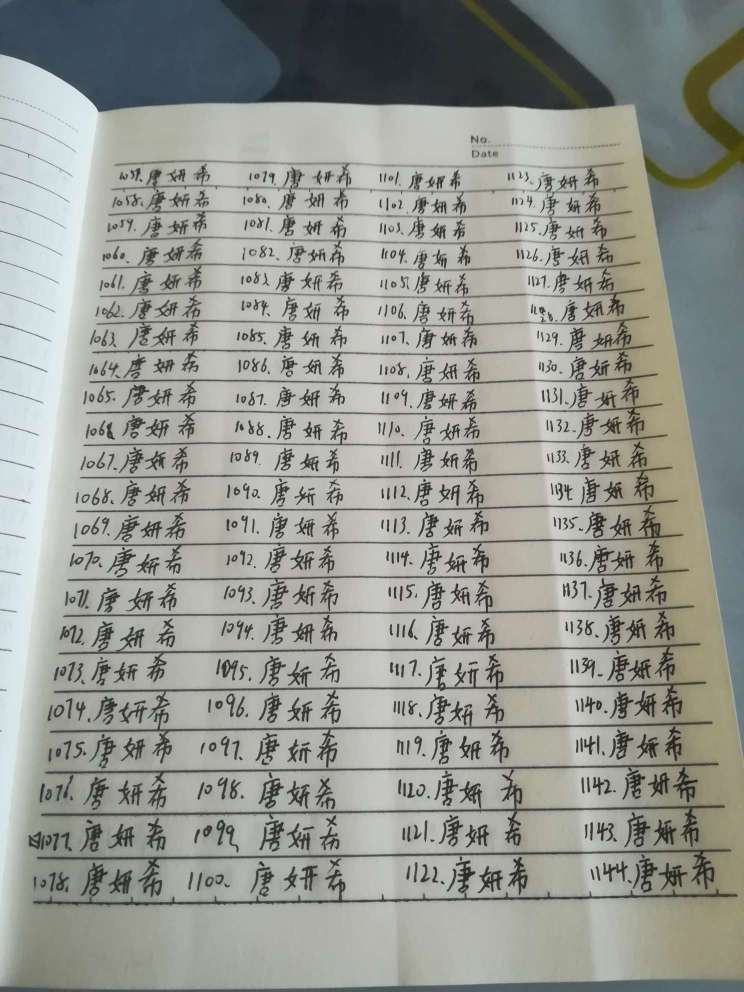 No.
Date
1057.唐妍希 1079.唐妍希 1101.唐妍希 1123.唐妍希
1058.唐妍希 1080.唐妍希 1102.唐妍希 1124.唐妍希
1059.唐妍希 1081.唐妍希 1103.唐妍希 1125.唐妍希
1060.唐妍希 1082.唐妍希 1104.唐妍希 1126.唐妍希
1061.唐妍希 1083.唐妍希 1105.唐妍希 1127.唐妍希
1062.唐妍希 1084.唐妍希 1106.唐妍希 1128.唐妍希
1063.唐妍希 1085.唐妍希 1107.唐妍希 1129.唐妍希
1064.唐妍希 1086.唐妍希 1108.唐妍希 1130.唐妍希
1065.唐妍希 1087.唐妍希 1109.唐妍希 1131.唐妍希
1066.唐妍希 1088.唐妍希 1110.唐妍希 1132.唐妍希
1067.唐妍希 1089.唐妍希 1111.唐妍希 1133.唐妍希
1068.唐妍希 1090.唐妍希 1112.唐妍希 1134.唐妍希
1069.唐妍希 1091.唐妍希 1113.唐妍希 1135.唐妍希
1070.唐妍希 1092.唐妍希 1114.唐妍希 1136.唐妍希
1071.唐妍希 1093.唐妍希 1115.唐妍希 1137.唐妍希
1072.唐妍希 1094.唐妍希 1116.唐妍希 1138.唐妍希
1073.唐妍希 1095.唐妍希 1117.唐妍希 1139.唐妍希
1074.唐妍希 1096.唐妍希 1118.唐妍希 1140.唐妍希
1075.唐妍希 1097.唐妍希 1119.唐妍希 1141.唐妍希
1076.唐妍希 1098.唐妍希 1120.唐妍希 1142.唐妍希
1077.唐妍希 1099.唐妍希 1121.唐妍希 1143.唐妍希
1078.唐妍希 1100.唐妍希 1122.唐妍希 1144.唐妍希